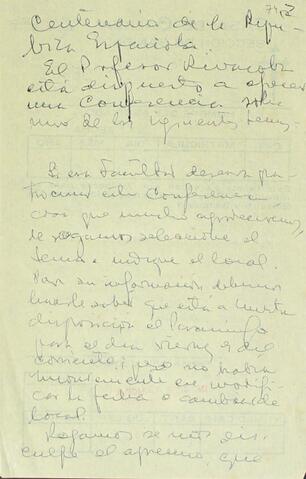 Centenario de la Repú-
blica Española.
El Profesor Rivacoba
está dispuesto a ofrecer
una Conferencia sobre
uno de los siguientes temas
Si esa Facultad desearía pa-
trocinar esta Conferencia
cosa que mucho agradeceríamos,
le rogamos seleccione el
tema e indique el local.
Para su información debemos
hacerle saber que está a nuestra
disposición el Paraninfo
para el día viernes del
corriente; pero no habría
inconveniente en modifi-
car la fecha o cambiar de
local.
Rogamos se nos dis-
culpe el apremio, que